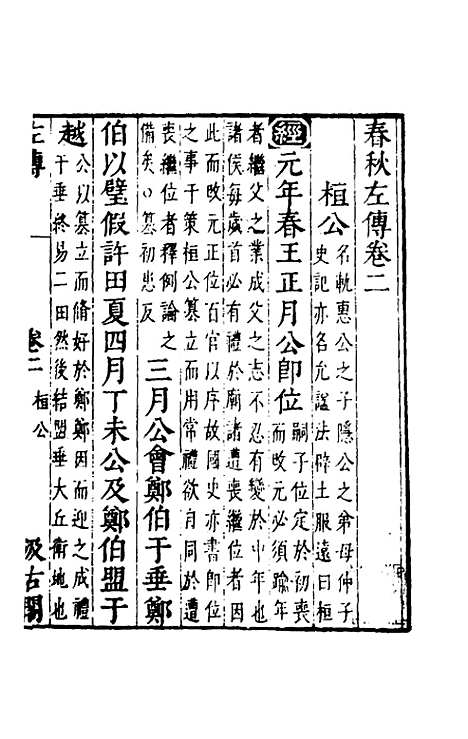 春秋左傳卷二
桓公
名軌惠公之子隱公之弟母仲子
史記亦名允謚法辟土服遠曰桓
經元年春王正月公即位
嗣子位定於初喪
而改元必須踰年
者繼父之業成父之志不忍有變於中年也
諸侯每歲首必有禮於廟諸遭喪繼位者因
此而改元正位百官以序故國史亦書即位
之事于策桓公篡立而用常禮欲自同於遭
喪繼位者釋例論之
備矣○篡初患反
三月公會鄭伯于垂鄭
伯以璧假許田夏四月丁未公及鄭伯盟于
越
公以篡立而脩好於鄭鄭因而迎之成禮
于垂終易二田然後結盟垂犬丘衛地也
左傳
卷二
桓公
汲古閣